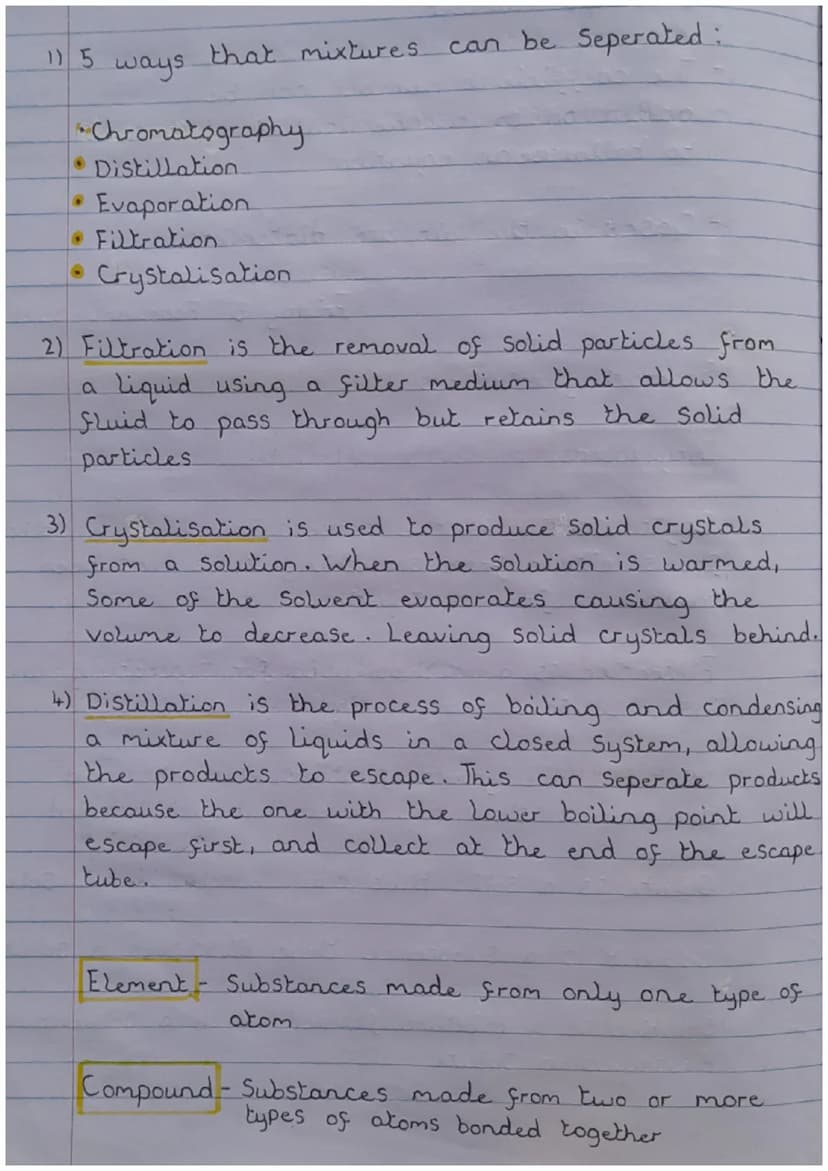 1) 5 ways that mixtures can be Seperated:
• Chromatography
• Distillation
• Evaporation
• Filtration
• Crystalisation
2) Filtration is the removal of solid particles from
a liquid using a filter medium that allows the
fluid to pass through but retains the solid
particles
3) Crystalisation is used to produce solid crystals
from a solution. When the solution is warmed,
some of the solvent evaporates causing the
volume to decrease. Leaving solid crystals behind.
4) Distillation is the process of boiling and condensing
a mixture of liquids in a closed system, allowing
the products to escape. This can seperate products
because the one with the lower boiling point will
escape first, and collect at the end of the escape
tube.
Element - Substances made from only one type of
atom
Compound - Substances made from two or more
types of atoms bonded together